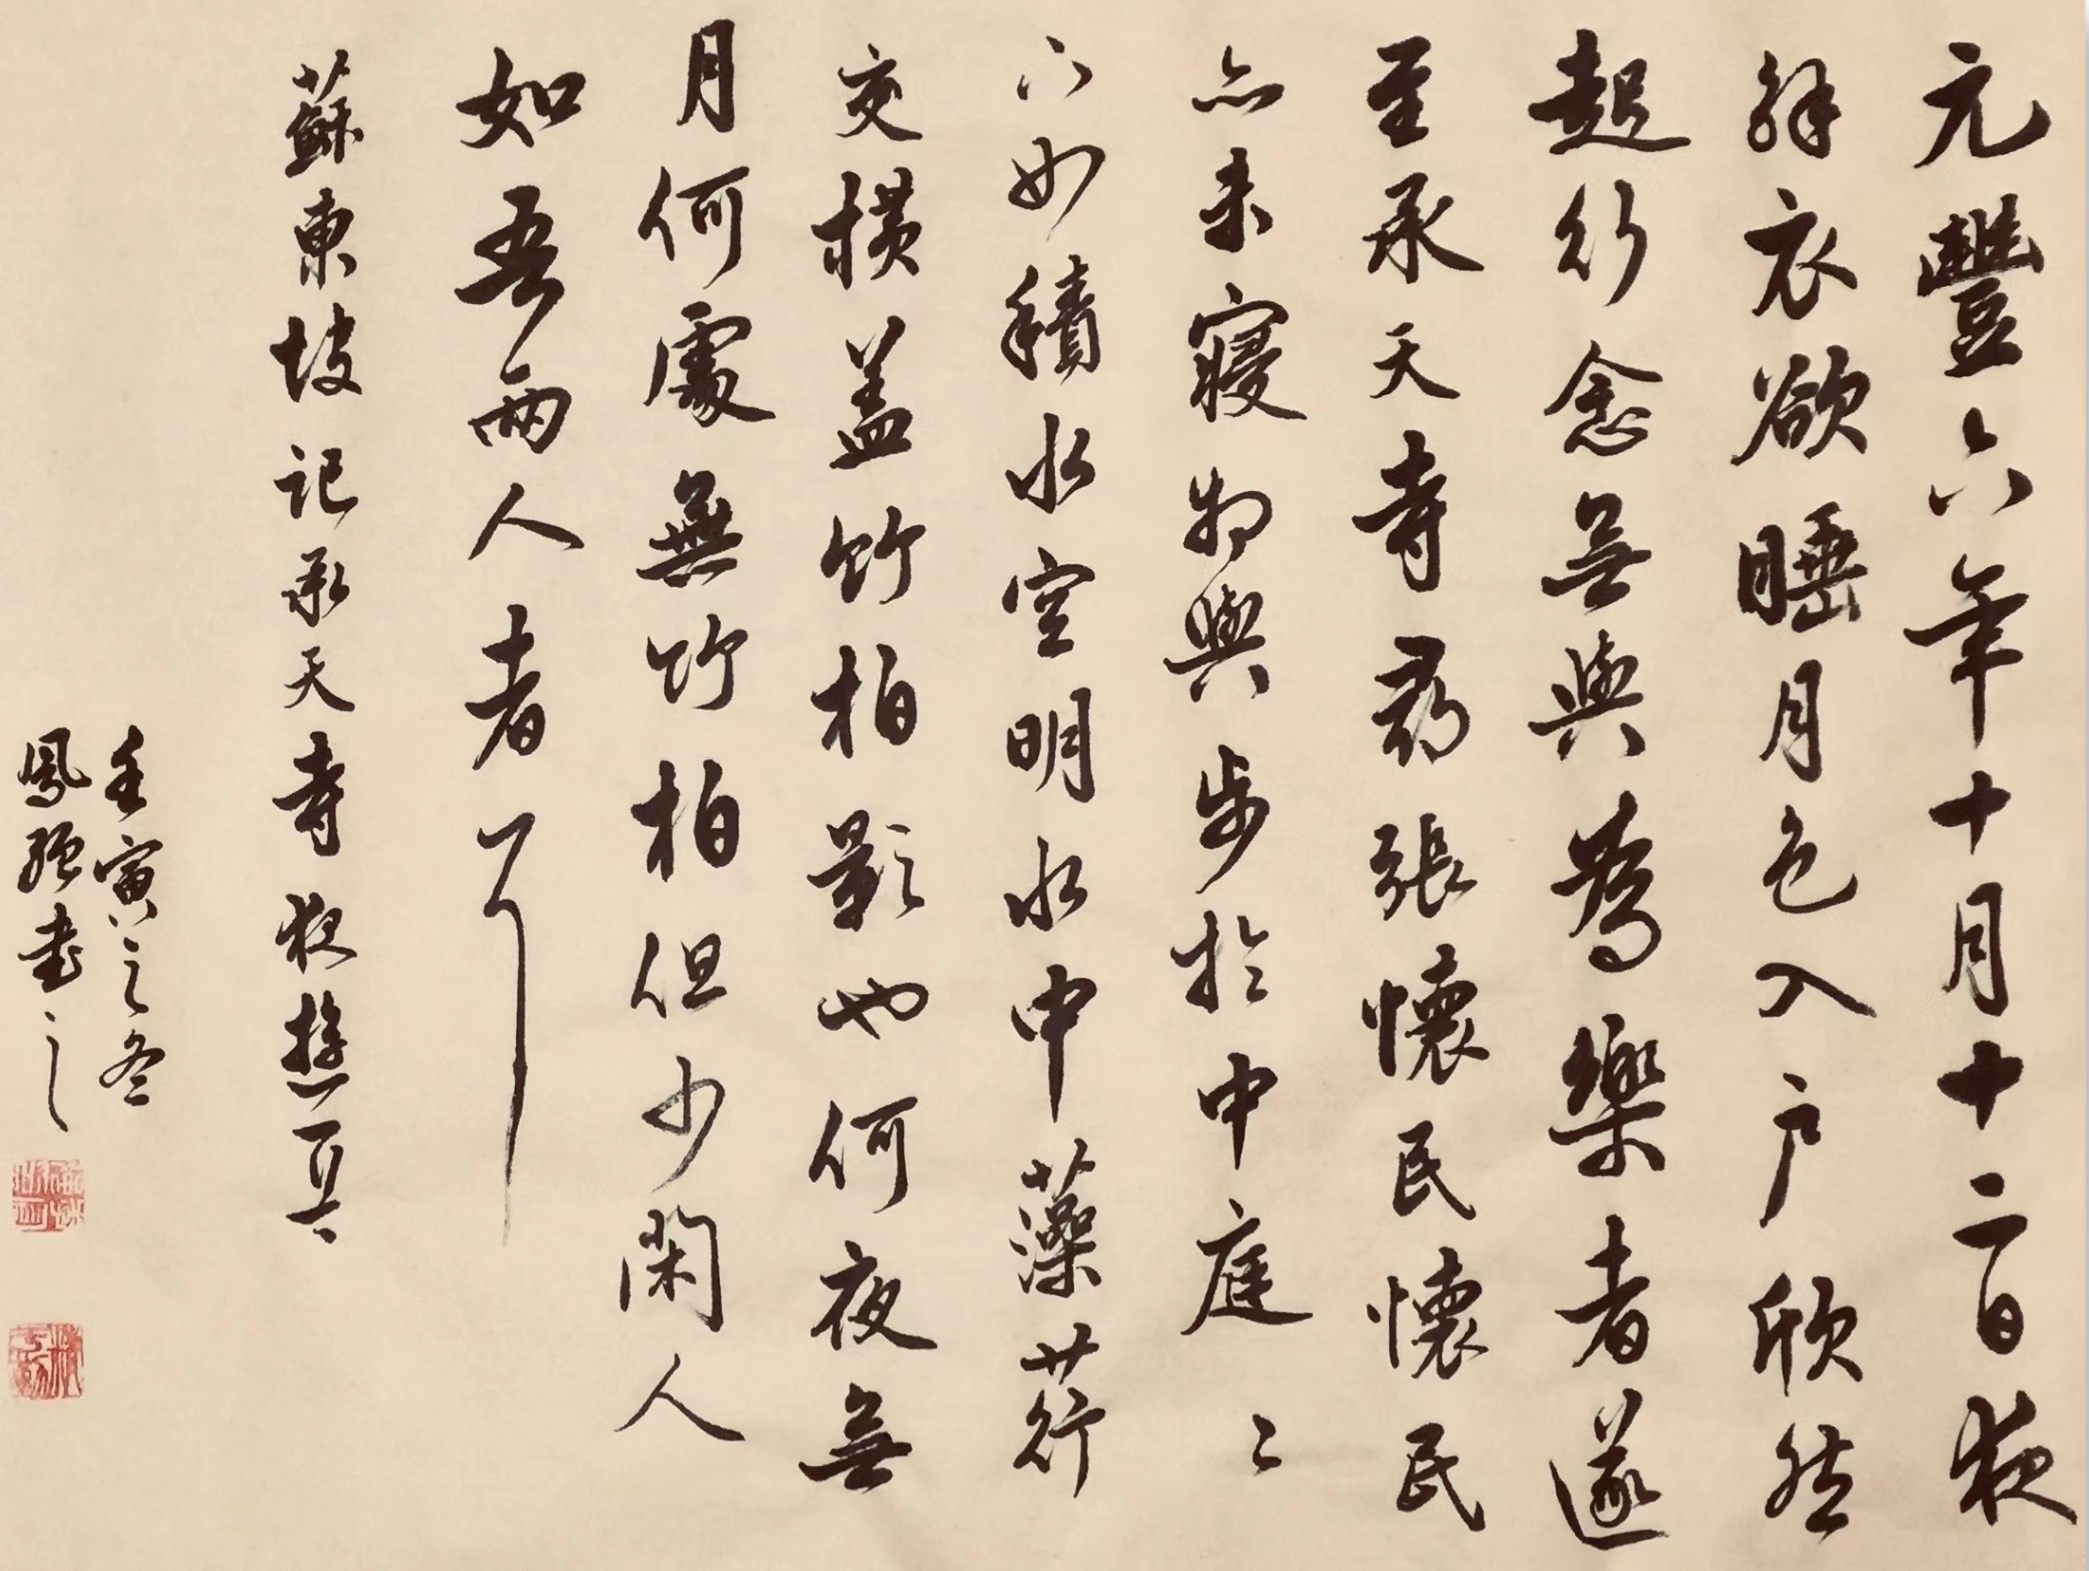 元豐六年十月十二日夜
解衣欲睡月色入戶欣然
起行念無與爲樂者遂
至承天寺尋張懷民懷民
亦未寢相與步於中庭〻
下如積水空明水中藻荇
交橫蓋竹柏影也何夜無
月何處無竹柏但少閑人
如吾兩人者耳
蘇東坡記承天寺夜遊一則
壬寅之冬
鳳強書之